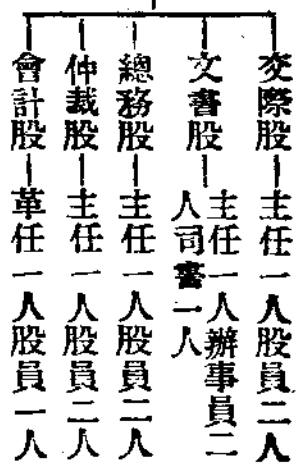 交際股—主任一人股員二人
文書股—主任一人辦事員二
人司書一人
總務股—主任一人股員二人
仲裁股—主任一人股員二人
會計股—革任一人股員一人